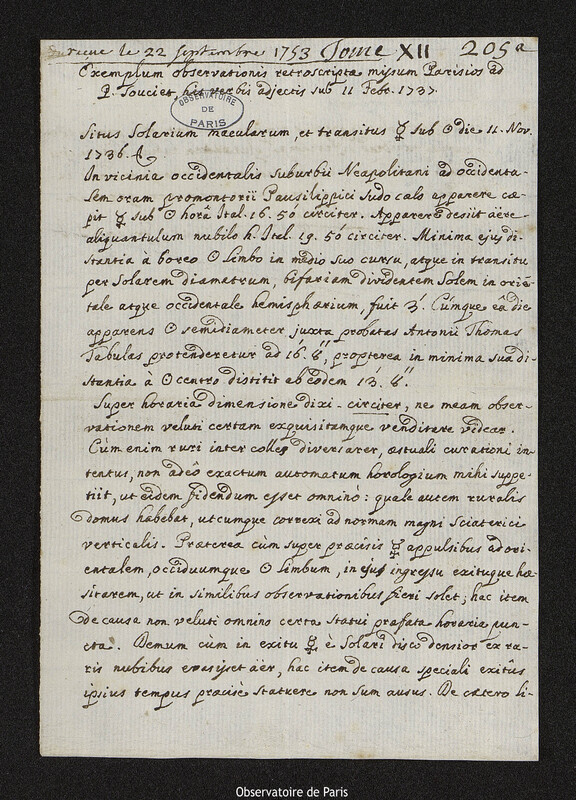 Surcue le 22 Septembre 1753 Tome XII 205a
Exemplum observationis retroscriptæ missum Parisios ad
P. Souciet, his verbis adjectis sub 11 Febr. 1737.
OBSERVATOIRE
DE
PARIS
Situs Solarium macularum, et transitus ☿ sub ☉ die 11. Nov.
1736.
In vicinia occidentalis suburbii Neapolitani ad occidenta-
lem oram promontorii Pausilippici sudo cælo apparere cæ-
pit ☿ sub ☉ horâ Ital. 16. 50 circiter. Apparere desiit aëre
aliquantulum nubilo h. Ital. 19. 50 circiter. Minima ejus di-
stantia à boreo ☉ limbo in medio suo cursu, atque in transitu
per Solarem diametrum, bifariam dividentem Solem in orië-
tale atque occidentale hemisphærium, fuit 3'. Cúmque eâ die
apparens ☉ semidiameter juxta probatas Antonii Thomas
Tabulas protenderetur ad 16'. 8", propterea in minima sua di-
stantia à ☉ centro distitit ab eodem 13'. 8".
Super horaria dimensione dixi circiter, ne meam obser-
vationem veluti certam exquisitamque venditere videar.
Cùm enim ruri inter colles diversarer, æstuali curationi in-
tentus, non adeò exactum automatum horologium mihi suppe-
tiit, ut eidem fidendum esset omninò: quale autem ruralis
domus habebat, utcumque correxi ad normam magni Sciaterici
verticalis. Præterea cùm super præcisis ☿ appulsibus ad ori-
entalem, occiduumque ☉ limbum, in ejus ingressu exituque hæ-
sitarem, ut in similibus observationibus fieri solet; hac item
de causa non veluti omnino certa statui præfata horaria pun-
cta. Demum cùm in exitu ☿ è Solari disco densior ex ra-
ris nubibus evasisset aër, hac item de causa speciali exitûs
ipsius tempus præcisè statuere non sum ausus. De cætero li-
Observatoire de Paris